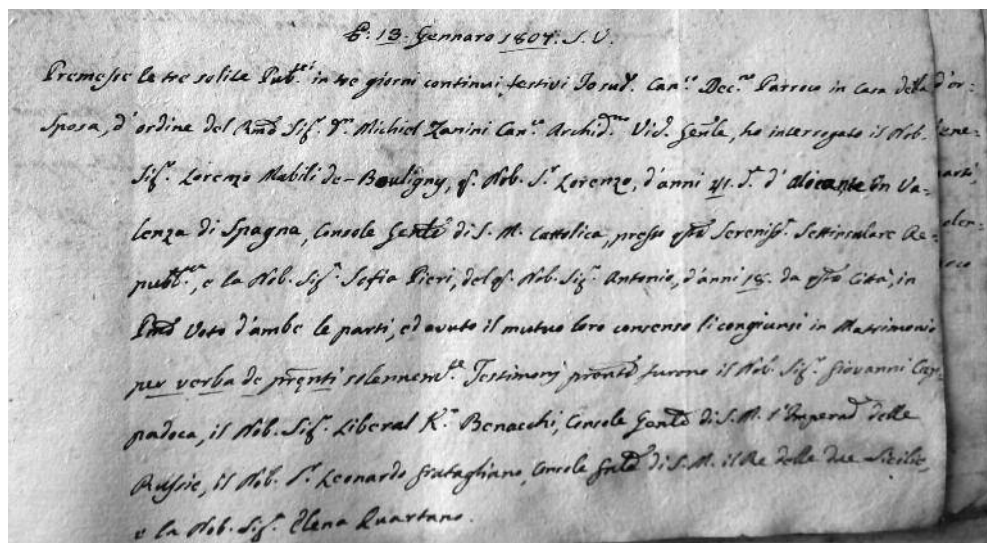 13. Gennaro 1807. S. V.
Premesse le tre solite Pub.ni in tre giorni continui festivi Io sud.º Can.co Dec.no Parroco in Casa della
Sposa, d'ordine del Rmõ Sig.r D.n Michiel Zanini Can.co Archid.no Vic.º Genle, ho interrogato il Nob.
Sig.r Lorenzo Mabili de-Bouligny, q. Nob. S.r Lorenzo, d'anni 41. d'Alicante in Va-
lenza di Spagna, Console Genle di S. M. Cattolica, presso qsta Sereniss.a Settinsulare Re-
pubb.ca, e la Nob. Sig.a Sofia Pieri, del q. Nob. Sig.r Antonio, d'anni 18. da qsta Città, in
Voto d'ambe le parti, ed avuto il mutuo loro consenso li congiunsi in Matrimonio
per verba de prñti solennem.te Testimonj prñti furono il Nob. Sig.r Giovanni Cap-
padoca, il Nob. Sig.r Liberal K.r Benacchi, Console Genle di S. M. l'Imperad.e delle
Russie, il Nob. S.r Leonardo Gratagliano, Console Gnle di S. M. il Re delle due Sicilie,
e la Nob. Sig.a Elena Quartano.